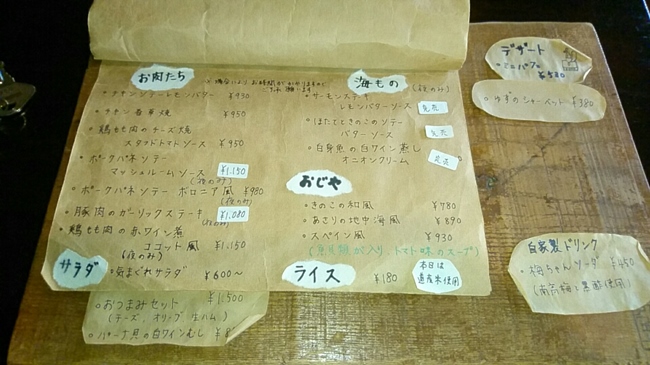 お肉たち
・チキンソテーレモンバター ¥930
・チキン香草焼 ¥950
・鶏もも肉のチーズ焼
スタッフドトマトソース ¥950
・ポークバネソテー
マッシュルームソース ¥1,150
(夜のみ)
・ポークバネソテー ボロニア風 ¥980
(夜のみ)
・豚肉のガーリックステーキ ¥1,080
・鶏もも肉の赤ワイン煮
ココット風 ¥1,150
(夜のみ)
サラダ
・気まぐれサラダ ¥600〜
・おつまみセット ¥1,500
(チーズ、オリーブ、生ハム)
海もの
(夜のみ)
レモンバターソース
・ほたてときのこのソテー
バターソース
・白身魚の白ワイン蒸し
オニオンクリーム
おじや
・きのこの和風 ¥780
・あさりの地中海風 ¥890
・スペイン風 ¥930
(魚貝類が入り、トマト味のスープ)
ライス ¥180
本日は
道産米使用
デザート
・ミニパフェ
¥580
・ゆずのシャーベット ¥380
自家製ドリンク
・梅ちゃんソーダ ¥450
(南高梅と黒酢使用)